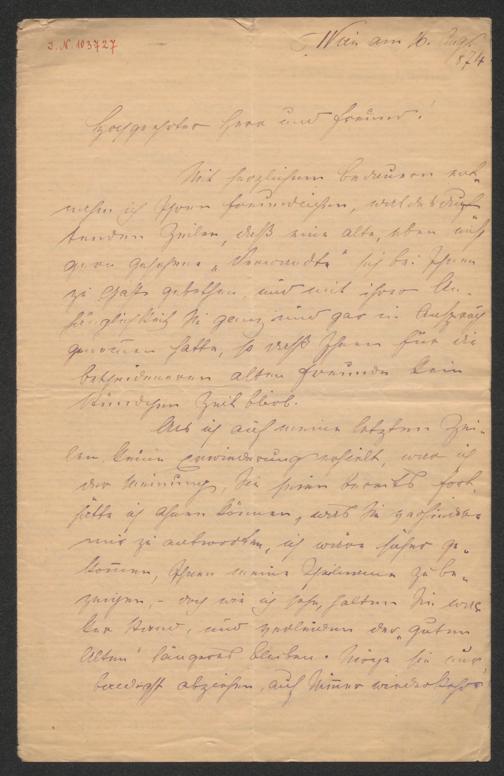 J. N. 103727
Wien am 16. Aug.
874.
Hochgeehrter Herr und Freund!
Mit herzlichem Bedauern ent-
nahm ich Ihren freundlichen,
tenden Zeilen, daß eine alte, eben nicht
gern gesehene „Verwandte“ sich bei Ihnen
zu Gaste gebethen, und mit ihrer An-
hänglichkeit Sie ganz und gar in Anspruch
genommen hatte, so daß Ihnen für die
bescheideneren alten Freunde kein
Stündchen Zeit blieb.
Als ich auf meine letzten Zei-
len keine Erwiederung erhielt, war ich
der Meinung, Sie seien bereits fort,
hätte ich ahnen können, was Sie verhindere
mir zu antworten, ich wäre sicher ge-
kommen, Ihnen meine Theilname zu be-
zeigen, – doch wie ich sehe, halten Sie wac
ker Stand, und verleiden der „guten
Alten“ längeres Bleiben. Möge sie nur
baldigst abziehen, auf Nimmerwiederkehr